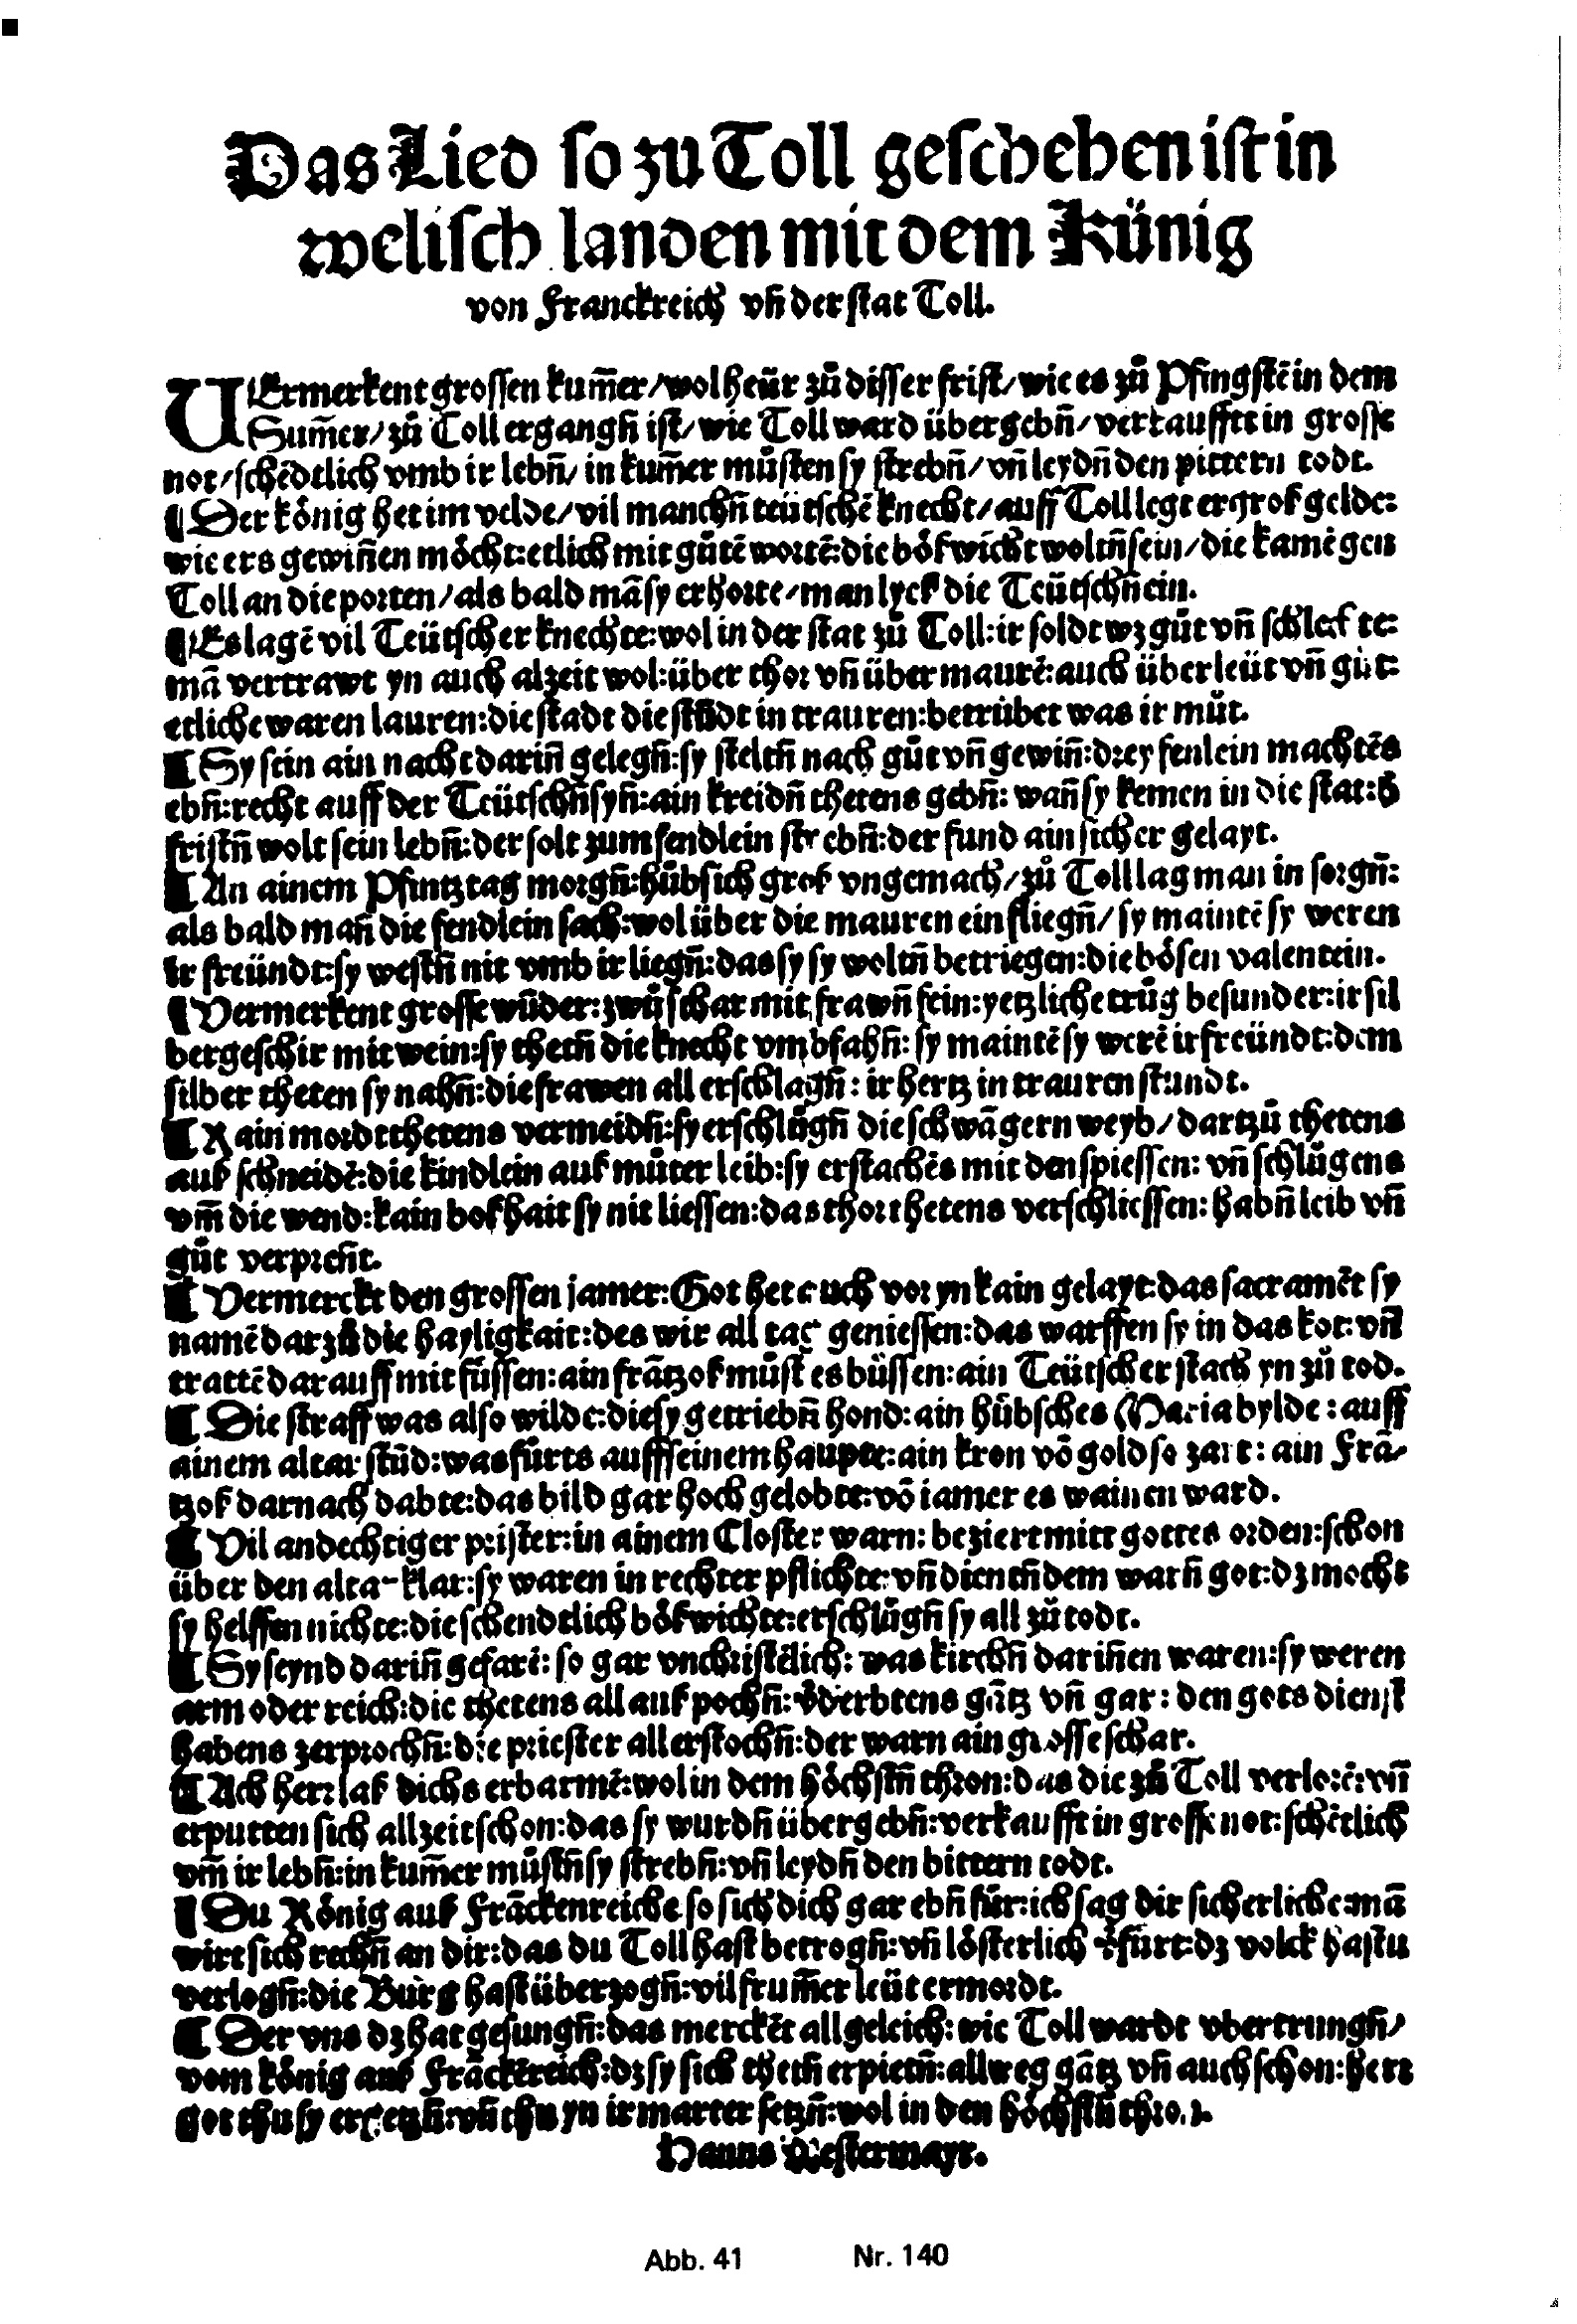 Das Lied so zu Toll geschehen ist in
welisch landen mit dem Künig
von Franckreich vñ der stat Toll.
VErmerkent grossen kum̄er/wol heür zů disser frist/wie es zů Pfingstē in dem
Sum̄er/zů Toll ergangñ ist/wie Toll ward übergebñ/verkaufft in grosse
not/schēdtlich vmb ir lebñ/in kum̄er můsten sy strebñ/vñ leydñ den pittern todt.
¶ Der könig het im velde/vil manchñ teütschē knecht/auff Toll legt er groß gelde:
wie ers gewiñen möcht:etlich mit gůtē wortē:die bößwicht woltñ sein/die kamē gen
Toll an die porten/als bald mā sy erhorte/man lyeß die Teütschñ ein.
¶ Es lagē vil Teütscher knechte:wol in der stat zů Toll:ir soldt wz gůt vñ schlechte:
mā vertrawt yn auch alzeit wol:über thor vñ über maurē:auch über leüt vñ gůt:
etliche waren lauren:die stadt die stůdt in trauren:betrübet was ir můt.
¶ Sy sein ain nacht dariñ gelegñ:sy steltñ nach gůt vñ gewiñ:drey fenlein machtēs
ebñ:recht auff der Teütschñ syñ:ain kreidñ thetens gebñ: wañ sy kemen in die stat:ð
fristñ wolt sein lebñ:der solt zum fendlein strebñ:der fund ain sicher gelayt.
¶ An ainem Pfintztag morgñ:hůbsich groß vngemach/zů Toll lag man in sorgñ:
als bald mañ die fendlein sach:wol über die mauren ein fliegñ/sy maintē sy weren
ir freündt:sy westñ nit vmb ir liegñ:das sy sy woltñ betriegen:die bösen valentein.
¶ Vermerkent grosse wūder:zwů schar mit frawñ fein:yetzliche trůg besunder:ir sil
bergeschir mit wein:sy thetñ die knecht vmbfahñ: sy maintē sy werē ir freündt:dem
silber theten sy nahñ:die frawen all erschlagñ: ir hertz in trauren stundt.
¶ Kain mordt thetens vermeidñ:sy erschlůgñ die schwāgern weyb/dartzů thetens
auß schneidē:die kindlein auß můter leib:sy erstachēs mit den spiessen: vñ schlůgens
vm̄ die wend:kain boßhait sy nit liessen:das thor thetens verschliessen: habñ leib vñ
gůt verprent.
¶ Vermerckt den grossen jamer:Got het auch vor yn kain gelayt:das sacramēt sy
namē darzů die hayligkait:des wir all tag geniessen:das warffen sy in das kot:vñ
trattē darauff mit füssen:ain frātzoß můst es büssen:ain Teütscher stach yn zů tod.
¶ Die straff was also wilde:die sy getriebñ hond:ain hübsches Maria bylde:auff
ainem altar stůd:was fürts auff seinem haupte:ain kron vō gold so zart: ain Frā-
tzoß darnach dabte:das bild gar hoch gelobte:vō iamer es wainen ward.
¶ Vil andechtiger prister:in ainem Closter warn: beziert mitt gottes orden:schon
über den altar klar:sy waren in rechter pflichte:vñ dientñ dem warñ got:dz mocht
sy helffen nichte:die schendtlich bößwichte:erschlůgñ sy all zů todt.
¶ Sy seynd dariñ gefarē: so gar vnchristēlich: was kirchñ dariñen waren:sy weren
arm oder reich:die thetens all auß pochñ:ðderbtens gātz vñ gar: den gots dienst
habens zerprochñ:die priester all erstochñ:der warn ain grosse schar.
¶ Ach herr laß dichs erbarmē:wol in dem höchstñ thron:das die zů Toll verlorē:vñ
erputten sich allzeit schon:das sy wurdñ übergebñ:verkaufft in grosse not:schētlich
vm̄ ir lebñ:in kum̄er můstñ sy strebñ:vñ leydñ den bittern todt.
¶ Du König auß Frāckenreiche so sich dich gar ebñ für:ich sag dir sicherliche:mā
wirt sich rechñ an dir:das du Toll hast betrogñ:vñ lösterlich ðfürt:dz volck hastu
verlogñ:die Burg hast überzogñ:vil frum̄er leüt ermordt.
¶ Der vns dz hat gesungñ:das merckēt all geleich:wie Toll wardt vbertrungñ/
vom könig auß Frāckereich:dz sy sich thetñ erpietñ:allweg gātz vñ auch schon:herr
got thu sy ergetzñ:vñ thu yn ir marter setzñ:wol in den höchstñ thron.
Hanns Westermayr.
Abb. 41 Nr. 140